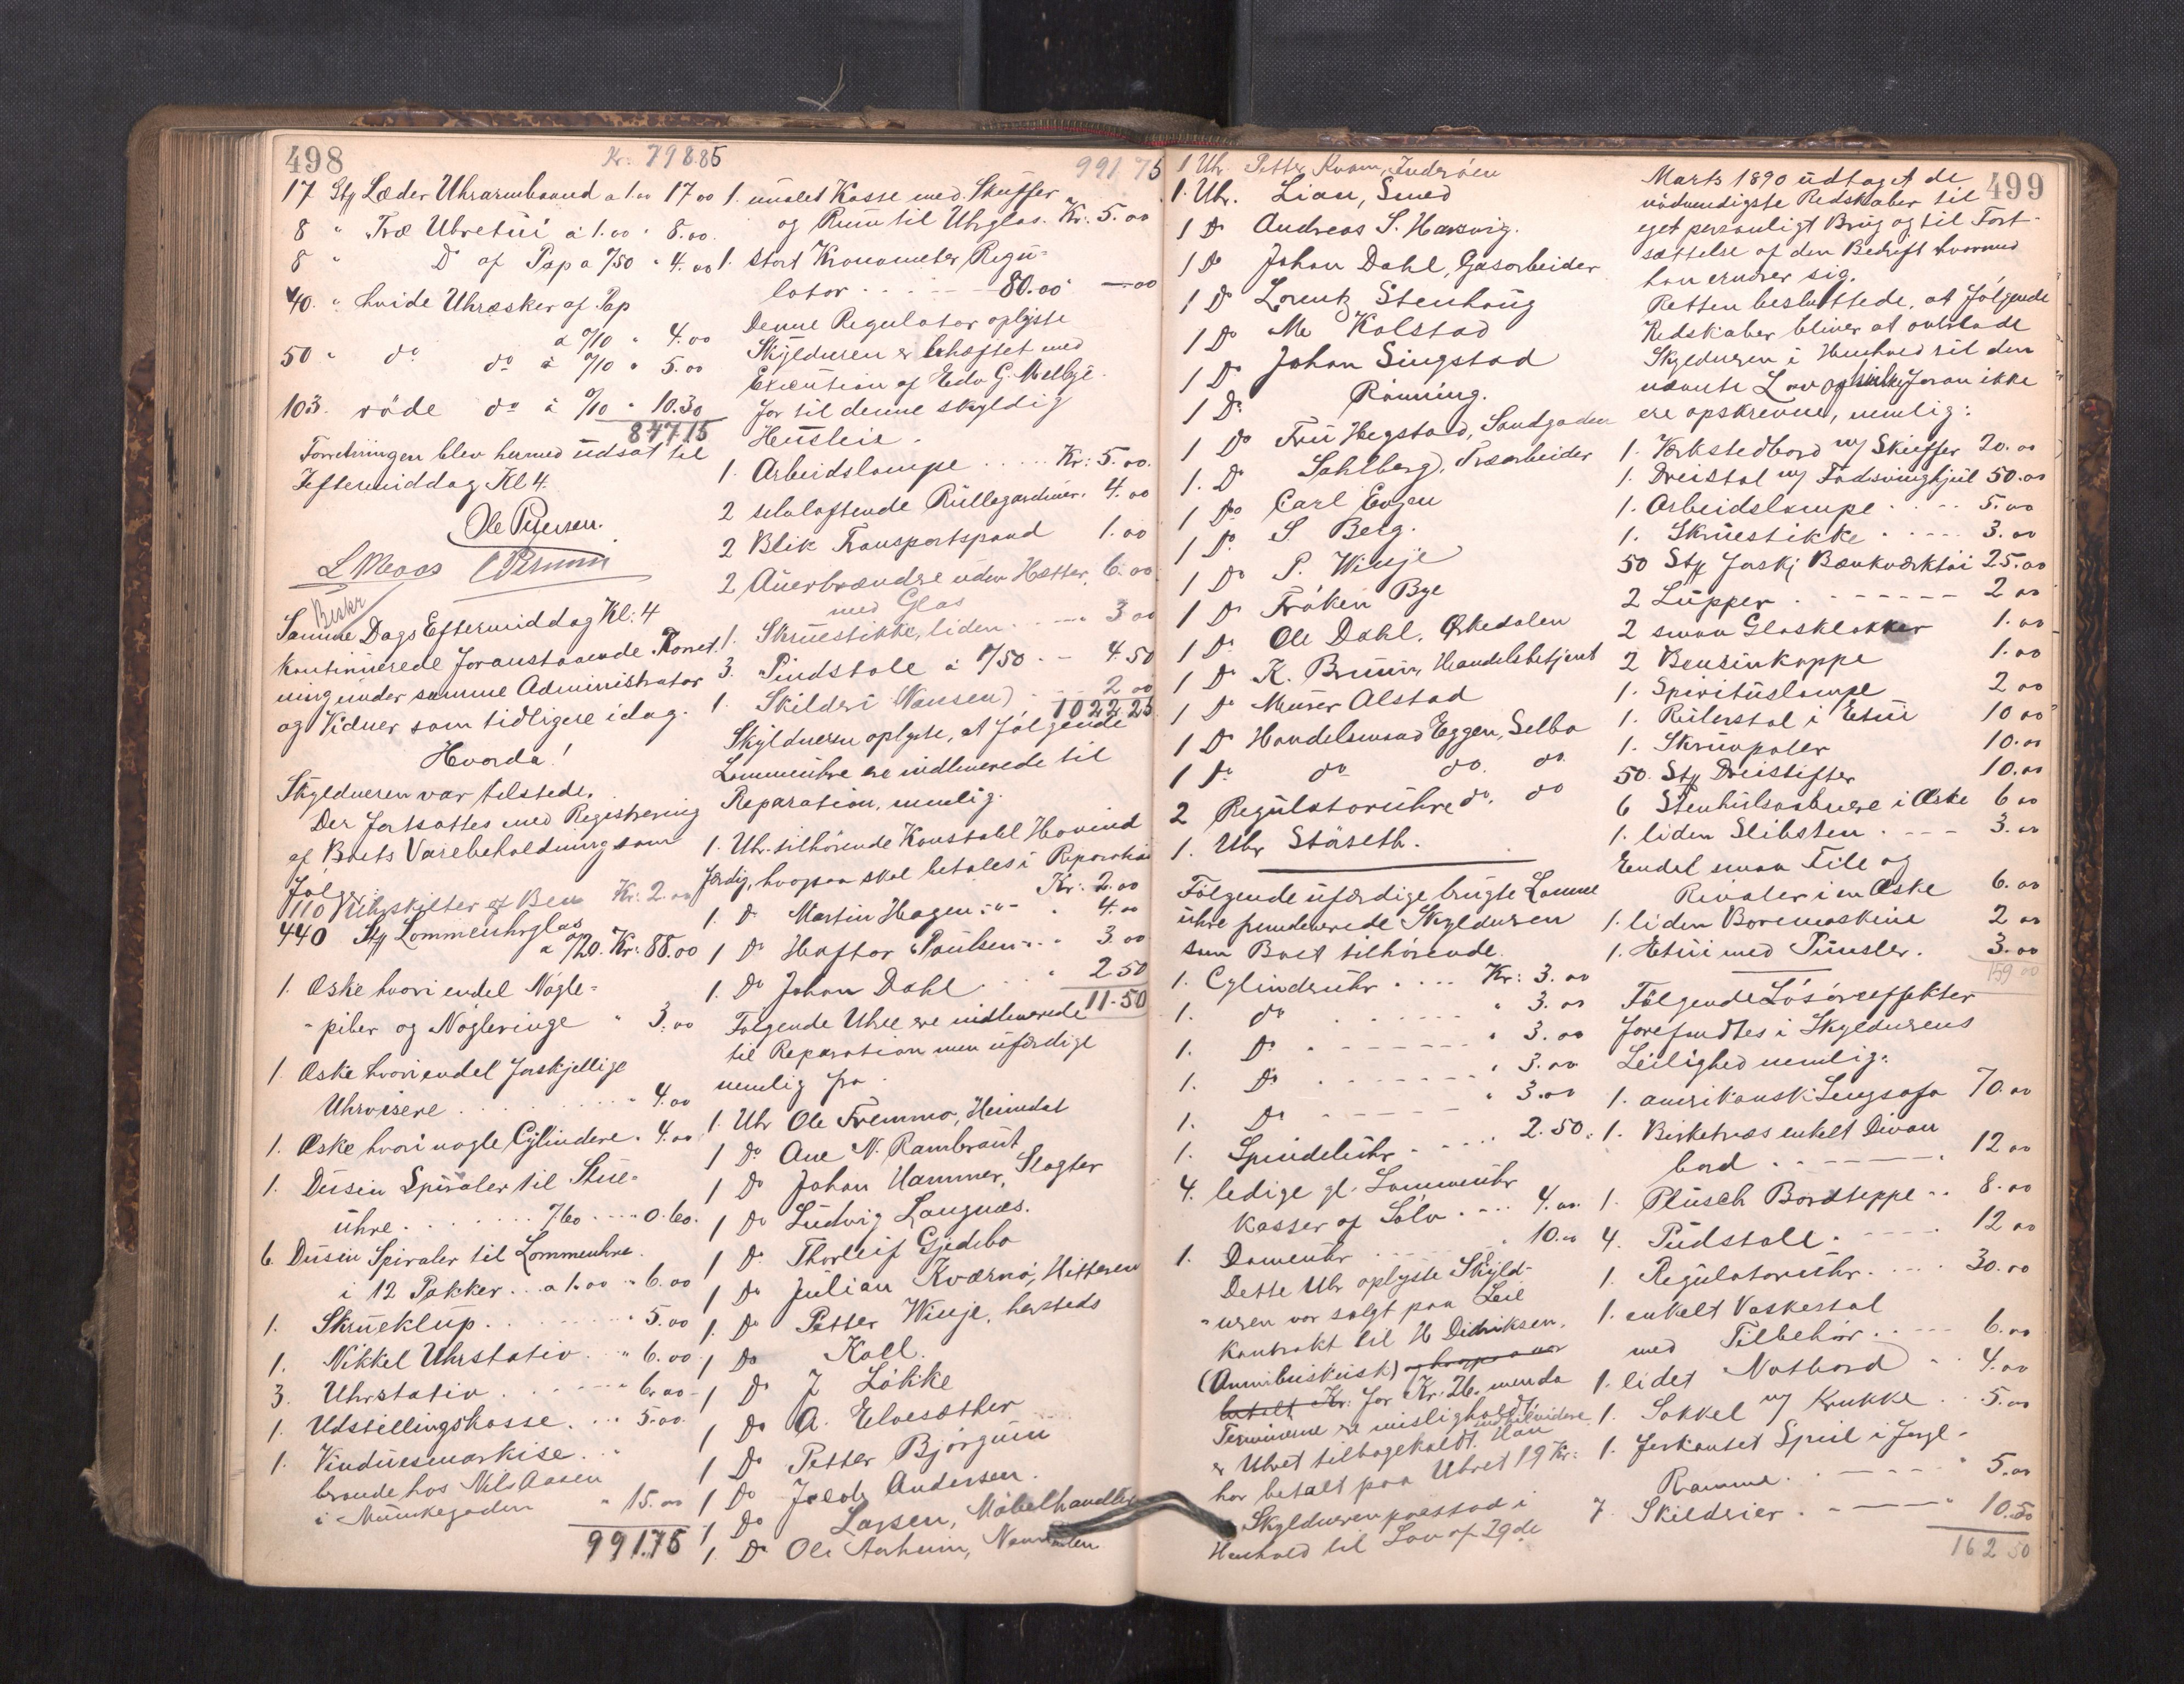 498
Kr. 798.85
17 Stk Læder Uhrarmbaand a 1.00 17 00
8 " Træ Uhretui á 1.00 " 8.00
8 " Do af Pap a 0/50 " 4.00
40. " hvide Uhræsker af Pap
a 0/10 " 4.00
50 " do do á 0/10 " 5.00
103. röde do á 0/10 " 10.30
847.15
Forretningen blev hermed udsat til
Eftermiddag Kl 4.
Ole Petersen.
L Moos
Beskr
Samme Dags Eftermiddag Kl: 4
kontinuerede foranstaaende Forret-
ning under samme Administrator
og Vidner som tidligere idag.
Hvorda!
Skyldneren var tilstede.
Der fortsattes med Registrering
af Boets Varebeholdning som
fölger:
110 Uhrskilter af Ben Kr: 2.00
440 Stk Lommeuhrglas
a 0/20. Kr: 88.00
1. Æske hvori endel Nögle-
- piber og Nögleringe " 3.00
1. Æske hvori endel forskjellige
Uhrvisere . . . . " 4.00
1. Æske hvori nogle Cylindere " 4.00
1. Dusin Spiraler til Stue-
uhre . . . . 0/60 . . . 0.60.
6. Dusin Spiraler til Lommeuhre.
i 12 Pakker . . a 1.00 " 6.00
1. Skrueklup . . . . " 5.00
1. Nikkel Uhrstativ . . " 6.00
3. Uhrstativ . . . . " 6.00
1. Udstillingskasse . . . 5.00
1. Vinduesmarkise . . "
beroende hos Nils Aasen
i Munkegaden " 15.00
991.75
991 75
1. malet Kasse med Skuffer
og Rum til Uhrglas. Kr: 5.00
1. stort Kronometer Regu-
lator . . . . 80.00
Denne Regulator oplyste
Skyldneren er behæftet med
Execution af Edv G. Melbye
for til denne skyldig
Husleie.
1. Arbeidslampe . . . . Kr: 5.00.
2 selvløftende Rullegardiner. 4.00
2 Blik Transportspand 1.00
2 Auerbrændre uden Hætter, 6.00
med Glas
1. Skruestikke, liden . . . 3 00
3. Pindstole á 1/50 . . 4.50
1. Skilderi (Nansen) . . 2 00
1022 25
Skyldneren oplyste, at følgende
Lommeuhre ere indleverede til
Reparation, nemlig.
1. Uhr. tilhörende Konstabel Hovind
færdig, hvorpaa skal betales i Reparation
Kr: 2.00
1. Do Martin Hagen " " 4.00
1 Do Haftor Pauken " . 3.00
1. Do Johan Dahl . . . " 2 50
11.50
Følgende Uhre ere indleverede
til Reparation men uferdige
nemlig fra.
1. Uhr Ole Fremmo, Heimdal
1 Do Ane N. Rambraut
1 Do Johan Hammer, Slagter
1 Do Ludvig Langnæs.
1 Do Thorleif Gjedebo
1 Do Julian Kværnö, Hitteren
1. Do Petter Winje, hersteds
1 Do Koll.
1 Do J Lökke
1 Do A. Elvesæther
1 Do Petter Bjørgum
1 Do Jacob Andersen.
1 Do Larsen, Möbelhandler
1. Do Ole Aarheim, Namdalen
499
1 Uhr Petter Kvam, Inderöen
1. Uhr. Lian, Smed
1 Do Andreas S. Harvig.
1 Do Johan Dahl, Gasarbeider
1 Do Lorentz Stenhaug
1 Do Me Kolstad
1 Do Johan Singstad
1 Do Rönning.
1 Do Fru Hegstad, Sandgaden
1. Do Sahlberg, Træarbeider
1 Do Carl Engen
1 Do S Berg.
1 Do P. Winje
1 Do Fröken Bye
1 Do Ole Dahl, Orkedalen
1 Do K. Bruun, Handelsbetjent
1 Do Murer Alstad
1 Do Handelsmand Eggen, Selbo
1 Do do do. do
2 Regulatoruhre do. do
1. Uhr Stöseth.
Følgende uferdige brugte Lomme
uhre fremleverede Skyldneren
som Boet tilhörende.
1. Cylinderuhr . . . . Kr: 3.00
1. do . . . . " 3.00
1. Do . . . . " 3.00
1. Do . . . . " 3.00
1. Do . . . . " 3.00
1. Spindeluhr . . . . 2.50.
4. ledige gl. Lommeuhr
kasser af Sölv . . . 4.00
1. Dameuhr . . . . " 10.00
Dette Uhr oplyste Skyld-
neren var solgt paa Leie
kontrakt til H Didriksen.
(Omnibuskusk) og hvorpaa er
betalt Kr: for Kr: 26. menda
Terminerne er misligholdt
indtilvidere
er Uhret tilbagekaldt. Han
har betalt paa Uhret 19 Kr:
Skyldneren paastod i
Henhold til Lov af 29de
Marts 1890 udtaget de
nödvendigste Redskaber til
eget personligt Brug og til Fort-
sættelse af den Bedrift hvormed
han ernærer sig.
Retten besluttede, at følgende
Redskaber bliver at overlade
Skyldneren i Henhold til den
nævnte Lov og hvilke foran ikke
ere opskrevne, nemlig:
1. Værkstedbord m/ Skuffer 20.00
1. Dreistol m/ Fodsvinghjul 50.00
1. Arbeidslampe . . . . 5.00
1. Skruestikke . . . . 3.00
50 Stk forskj Bænkværktöi 25.00
2 Lupper . . . . . 2 00
2 smaa Glasklokker 1.00
2 Bensinkoppe 1.00
1. Spirituslampe 2 00
1. Rulerstol i Etui 10 00
1. Skrupoler 10.00
50. Stk Dreistifter 10.00
6 Stenhulsaabnere i Æske 6 00
1. liden Slibsten . . . . 3.00
Endel smaa File og
Rivaler i en Æske 6.00
1. liden Boremaskine 2 00
1. Etui med Punsler. 3.00
159 00
Følgende Lösöreeffekter
forefandtes i Skyldnerens
Leilighed nemlig:
1. amerikansk Lengsofa 70.00
1. Birketræs enkelt Divan
bord . . . . . 12 00
1. Plüsch Bordteppe . . 8.00
4. Pudstole . . . . 12 00
1. Regulatoruhr . . . . 30.00
1. enkelt Vaskestol
med Tilbehör . . . 6.00
1. lidet Natbord " . 4.00
1. Sokkel m/ Krukke . 5.00
1. firkantet Speil i forgl-
Ramme . . . . " 5.00
7. Skilderier . . . . " 10.50
162 50